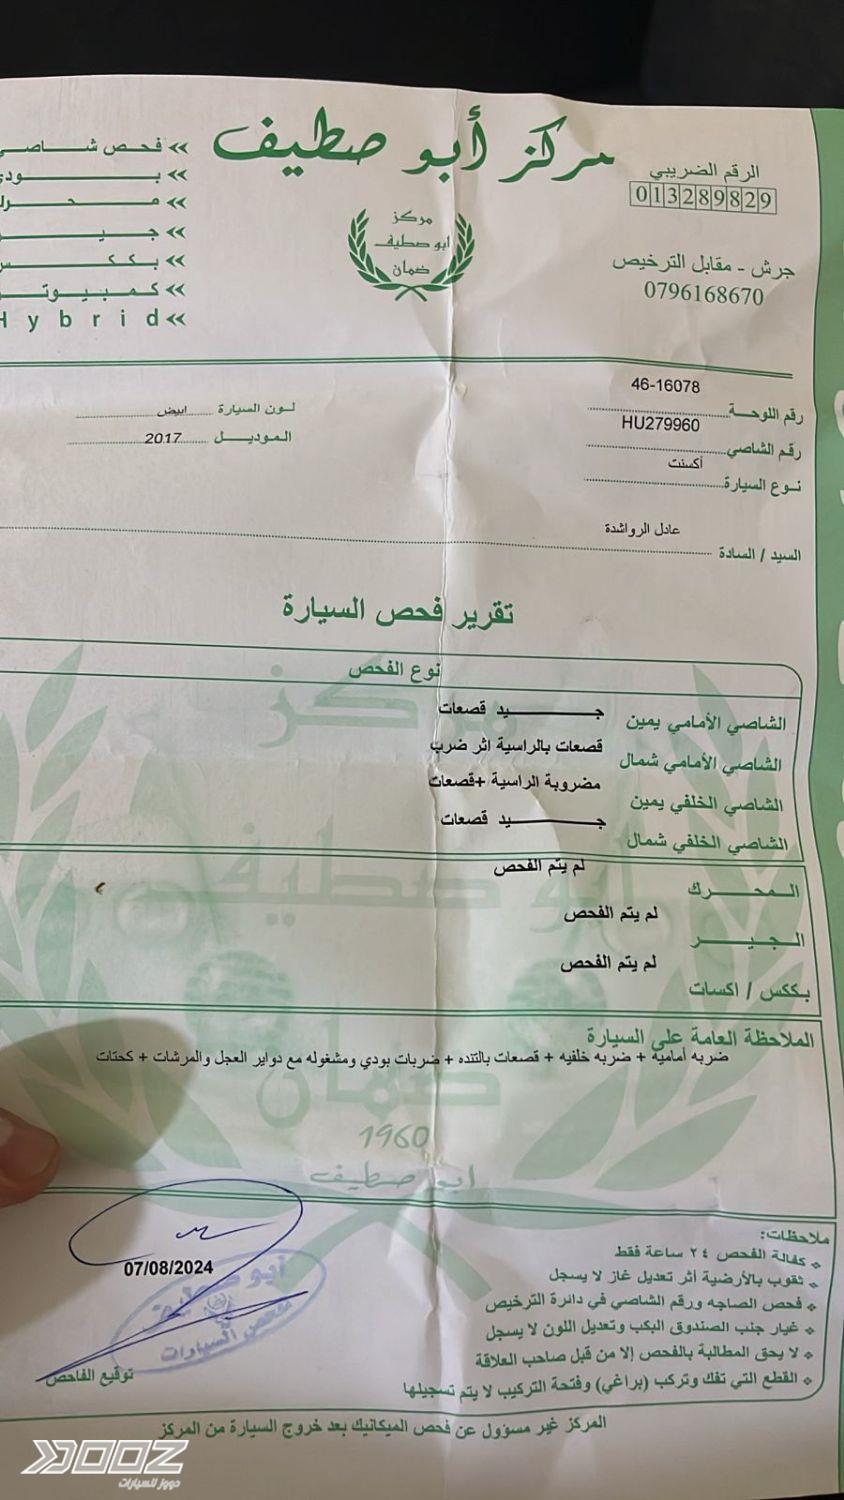 مركز أبو صطيف
الرقم الضريبي
013289829
جرش - مقابل الترخيص
0796168670
مركز
ابو صطيف
ضمان
>> فحص شاصي
>>
>>
>>
>>
>>
>> Hybrid
46-16078
رقم اللوحة
HU279960
رقم الشاصي
أكسنت
نوع السيارة
لون السيارة ابيض
الموديل 2017
عادل الرواشدة
السيد / السادة
تقرير فحص السيارة
نوع الفحص
الشاصي الأمامي يمين جيد قصعات
الشاصي الأمامي شمال قصعات بالراسية اثر ضرب
الشاصي الخلفي يمين مضروبة الراسية +قصعات
الشاصي الخلفي شمال جيد قصعات
المحرك لم يتم الفحص
الجير لم يتم الفحص
بككس / اكسات لم يتم الفحص
الملاحظة العامة على السيارة
ضربه أماميه + ضربه خلفيه + قصعات بالتنده + ضربات بودي ومشغوله مع دواير العجل والمرشات + كحتات
مركز
ابو صطيف
ضمان
1960
ابو صطيف
ملاحظات:
كفالة الفحص ٢٤ ساعة فقط
ثقوب بالأرضية أثر تعديل غاز لا يسجل
فحص الصاجه ورقم الشاصي في دائرة الترخيص
غيار جنب الصندوق البكب وتعديل اللون لا يسجل
لا يحق المطالبة بالفحص إلا من قبل صاحب العلاقة
القطع التي تفك وتركب (براغي) وفتحة التركيب لا يتم تسجيلها
07/08/2024
أبو صطيف
لفحص السيارات
توقيع الفاحص
المركز غير مسؤول عن فحص الميكانيك بعد خروج السيارة من المركز
DOOZ
دووز للسيارات